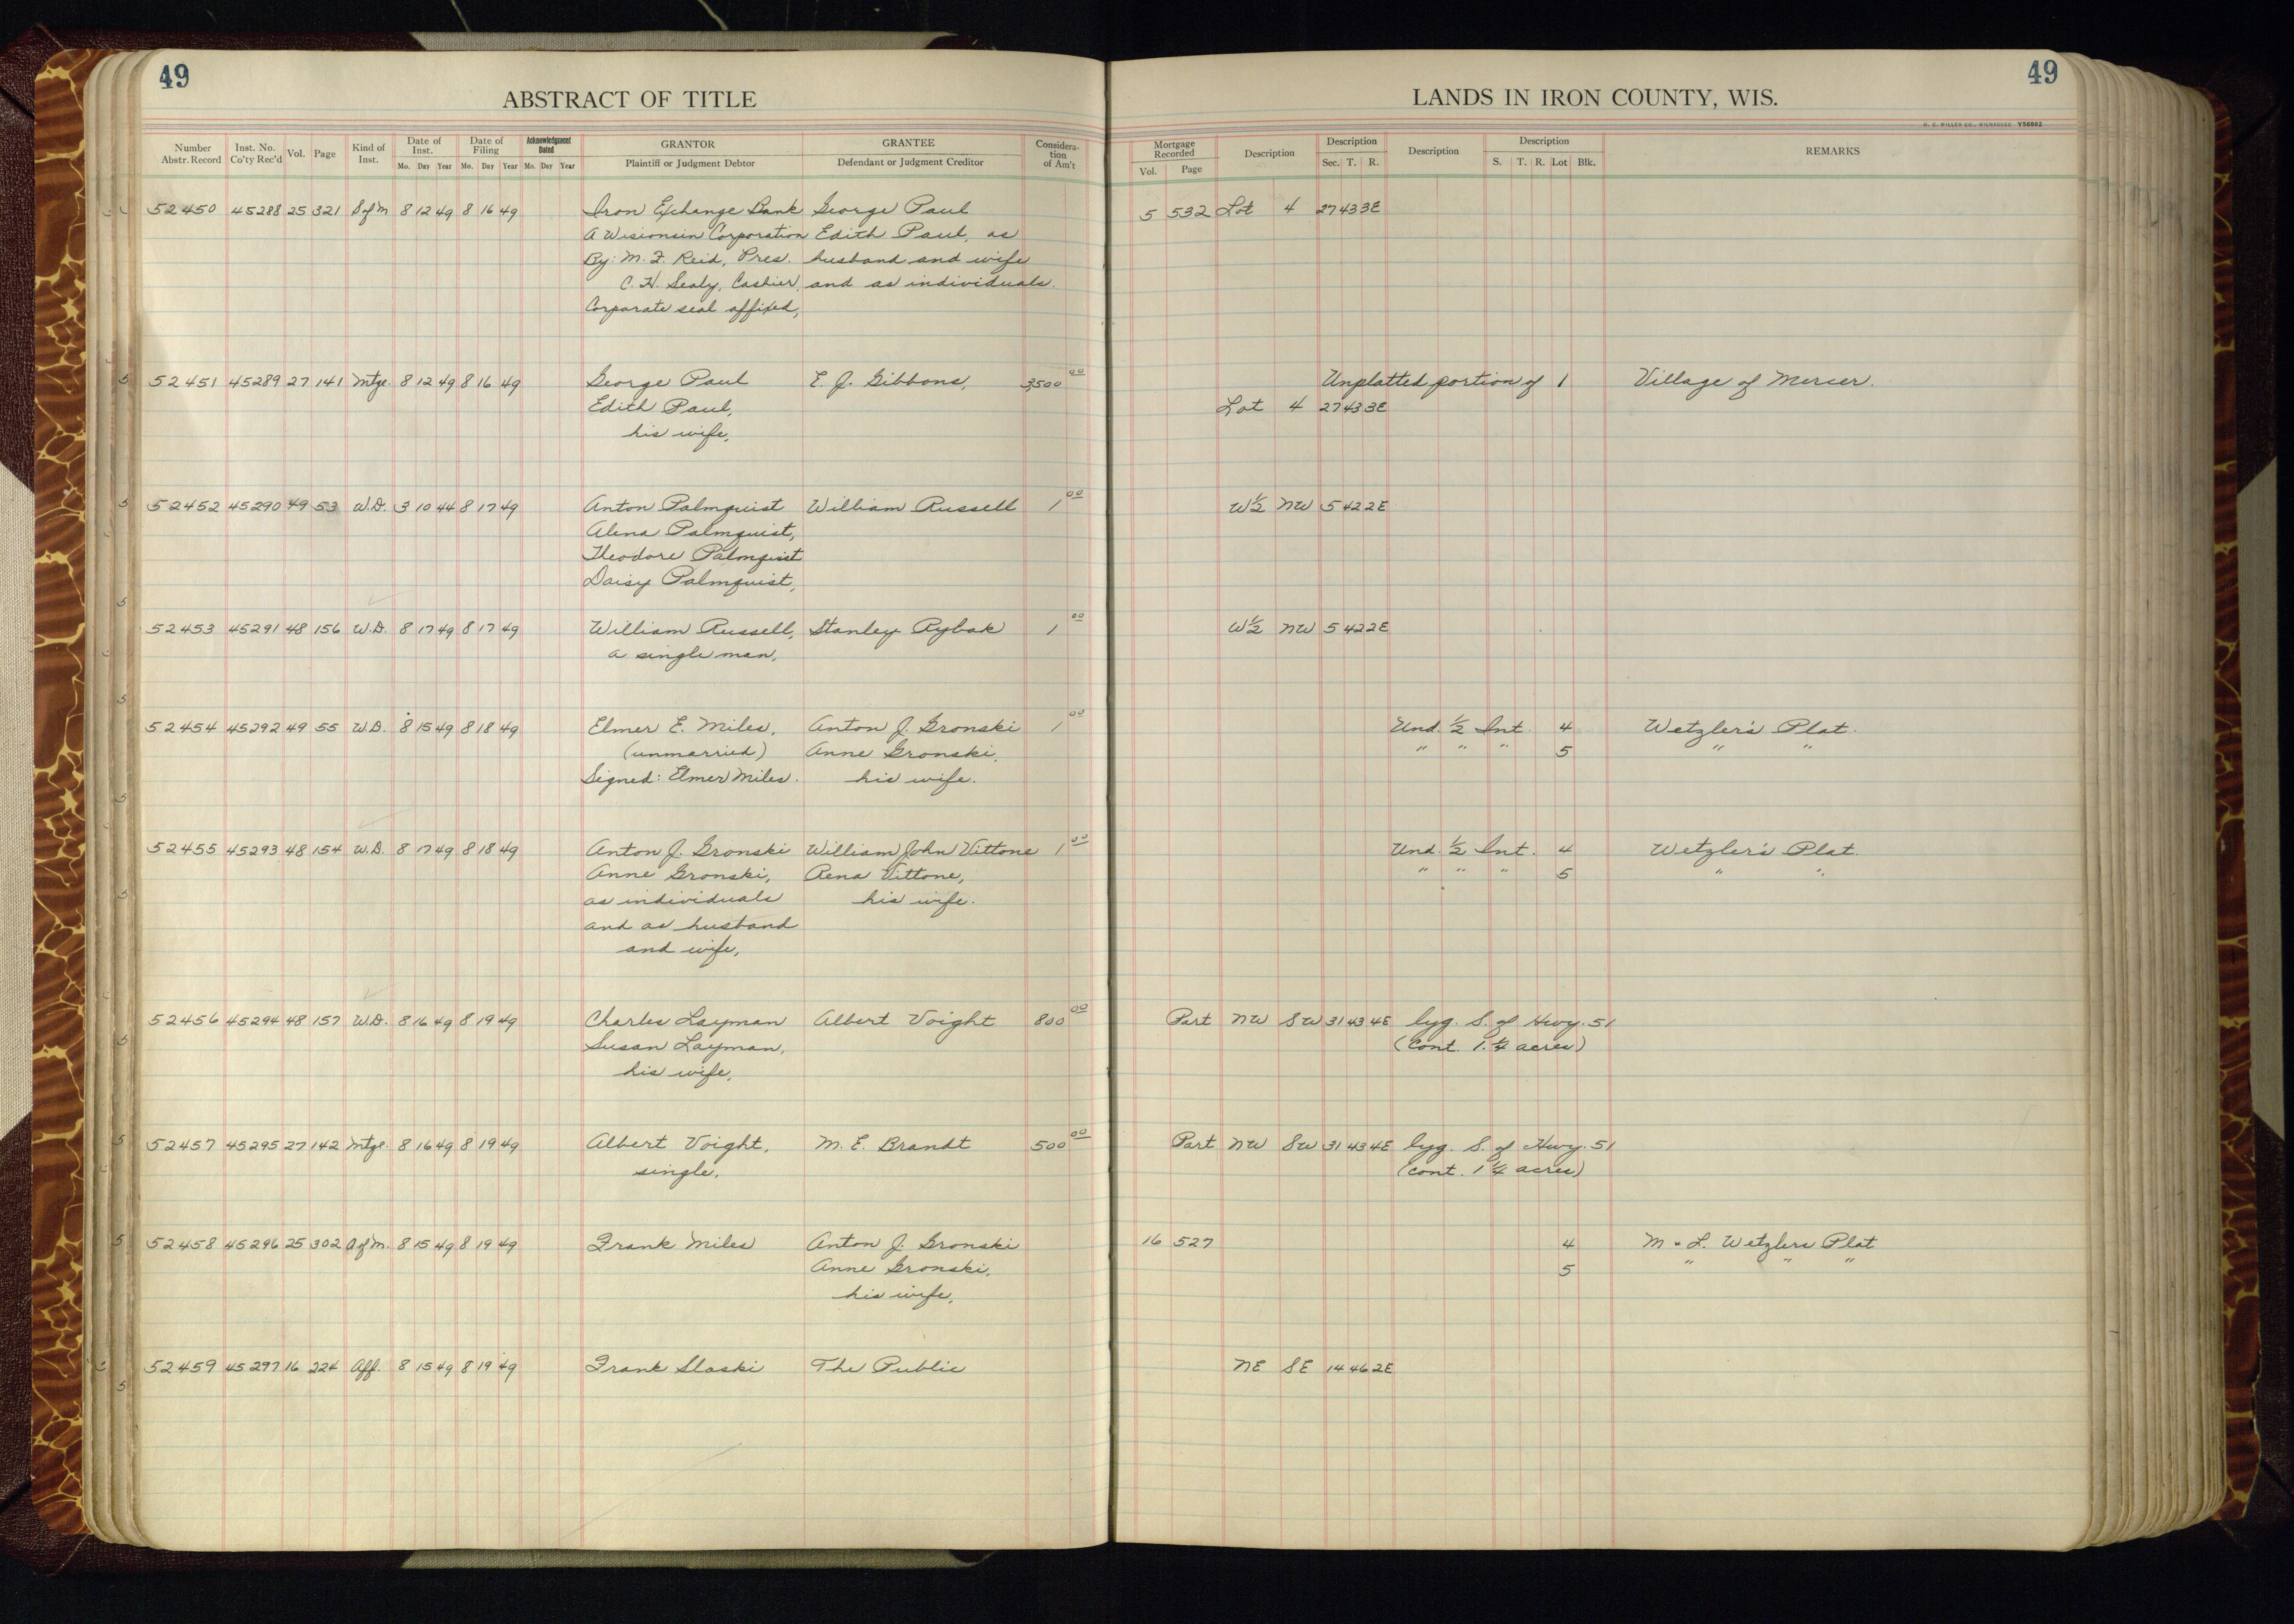 49
ABSTRACT OF TITLE
Number Abstr. Record Inst. No. Co'ty Rec'd Vol. Page Kind of Inst. Date of Inst. Mo. Day Year Date of Filing Mo. Day Year Acknowledgment Dated Mo. Day Year GRANTOR Plaintiff or Judgment Debtor GRANTEE Defendant or Judgment Creditor Consideration of Am't
52450 45288 25 321 S of M 8 12 49 8 16 49 Iron Exchange Bank George Paul
A Wisconsin Corporation Edith Paul, as
By: M. F. Reid, Pres. husband and wife
C. H. Sealy, Cashier, and as individuals.
Corporate seal affixed,
52451 45289 27 141 Mtge. 8 12 49 8 16 49 George Paul E. J. Gibbons, 3500 00
Edith Paul,
his wife,
52452 45290 49 53 W.D. 3 10 44 8 17 49 Anton Palmquist William Russell 1 00
Alena Palmquist,
Theodore Palmquist
Daisy Palmquist,
52453 45291 48 156 W.D. 8 17 49 8 17 49 William Russell, Stanley Rybak 1 00
a single man,
52454 45292 49 55 W.D. 8 15 49 8 18 49 Elmer E. Miles, Anton J. Gronski 1 00
(unmarried) Anne Gronski,
Signed: Elmer Miles. his wife.
52455 45293 48 154 W.D. 8 17 49 8 18 49 Anton J. Gronski William John Vittone 1 00
Anne Gronski, Rena Vittone,
as individuals his wife.
and as husband
and wife,
52456 45294 48 157 W.D. 8 16 49 8 19 49 Charles Layman Albert Voight 800 00
Susan Layman,
his wife,
52457 45295 27 142 Mtge. 8 16 49 8 19 49 Albert Voight, M. E. Brandt 500 00
single,
52458 45296 25 302 A of M. 8 15 49 8 19 49 Frank Miles Anton J. Gronski
Anne Gronski,
his wife,
52459 45297 16 224 Aff. 8 15 49 8 19 49 Frank Slaski The Public
49
LANDS IN IRON COUNTY, WIS.
H. C. MILLER CO., MILWAUKEE Y56862
Mortgage Recorded Vol. Page Description Description Sec. T. R. Description Description S. T. R. Lot Blk. REMARKS
5 532 Lot 4 27 43 3E
Unplatted portion of 1 Village of Mercer.
Lot 4 27 43 3E
W½ NW 5 42 2E
W½ NW 5 42 2E
Und. ½ Int. 4 Wetzler's Plat.
" " " 5 " "
Und. ½ Int. 4 Wetzler's Plat.
" " " 5 " "
Part NW SW 31 43 4E lyg. S. of Hwy. 51
(Cont. 1.¼ acres)
Part NW SW 31 43 4E lyg. S. of Hwy. 51
(cont. 1 ¼ acres)
16 527 4 M & L. Wetzlers Plat
5 " " "
NE SE 14 46 2E